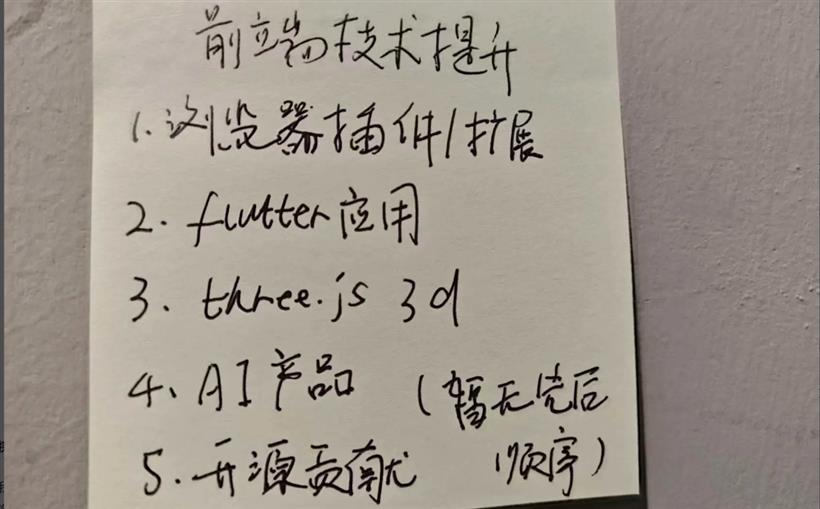 前端技术提升
1.浏览器插件/扩展
2.flutter应用
3.three.js 3d
4、AI产品 (暂无先后
5.开源贡献 顺序)